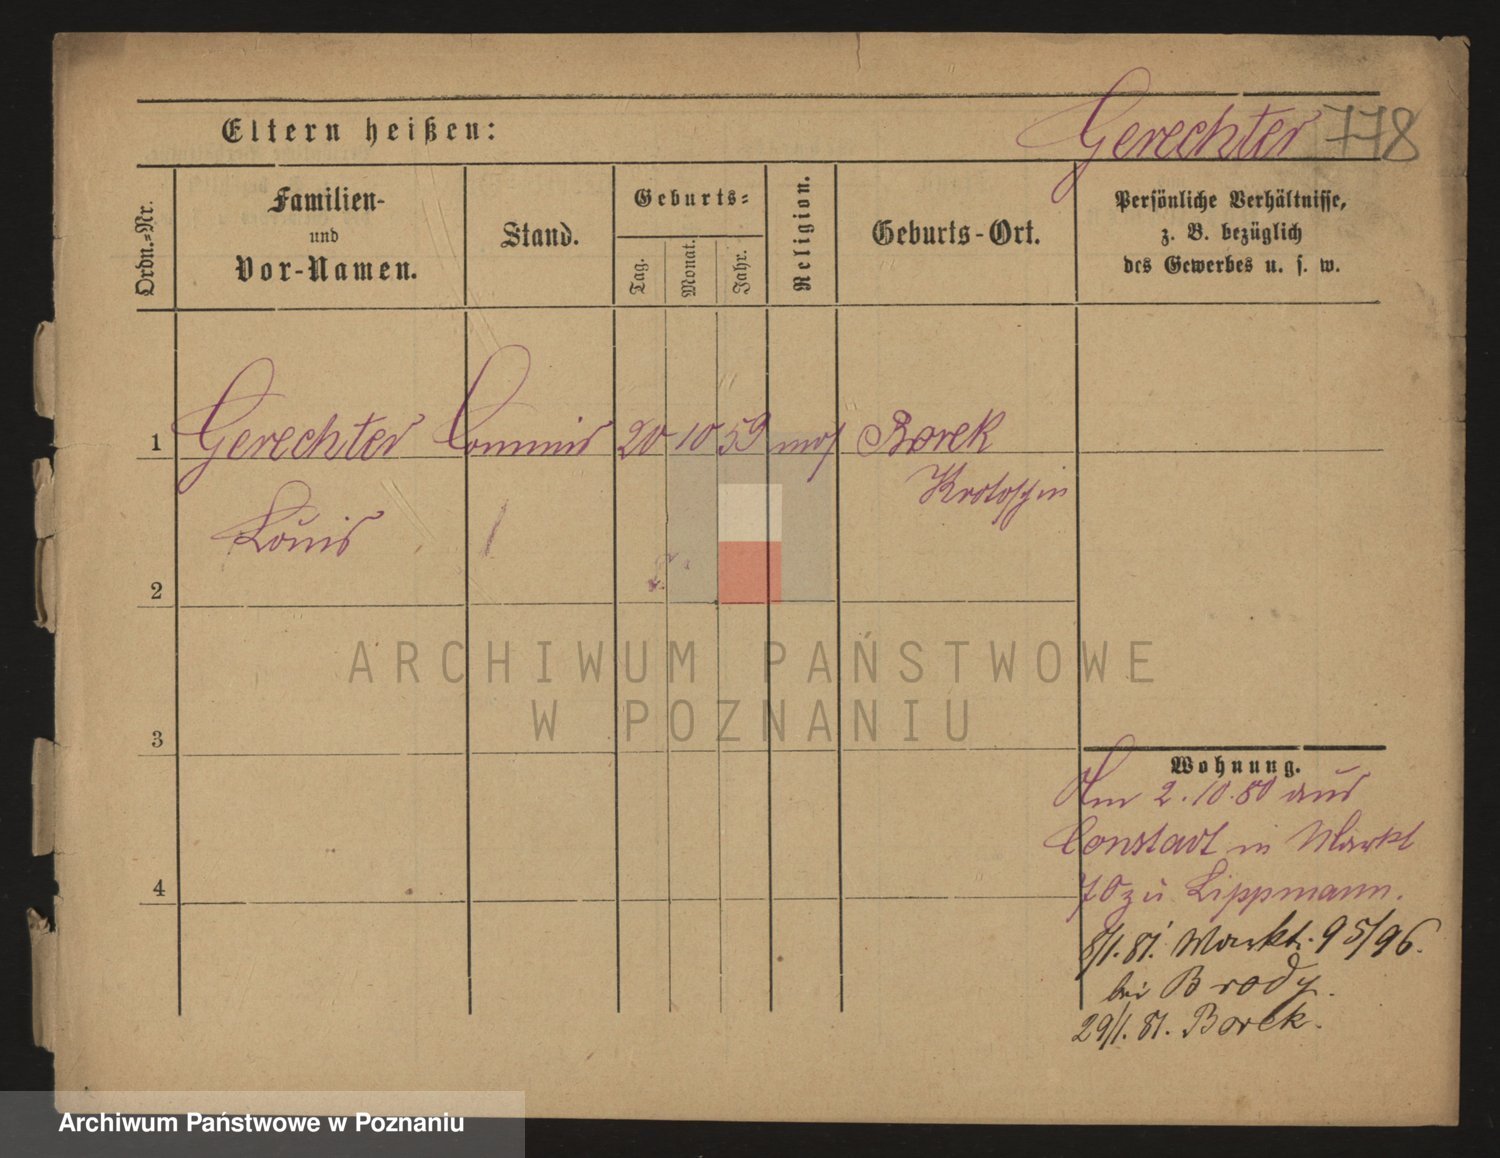 Gerechter 778
Eltern heißen:
Ordn.-Nr.
Familien-
und
Vor-Namen.
Stand.
Geburts-
Tag.
Monat.
Jahr.
Religion.
Geburts-Ort.
Persönliche Verhältnisse,
z. B. bezüglich
des Gewerbes u. s. w.
1 Gerechter Commis 20 10 59 mos Borek
Krotoschin
Louis
2
3
4
Wohnung.
Am 2.10.80 aus
Constadt in Markt
70 zu Lippmann.
8/1.81. Markt. 95/96.
bei Brody.
29/1.81. Borek.
ARCHIWUM PAŃSTWOWE
W POZNANIU
Archiwum Państwowe w Poznaniu